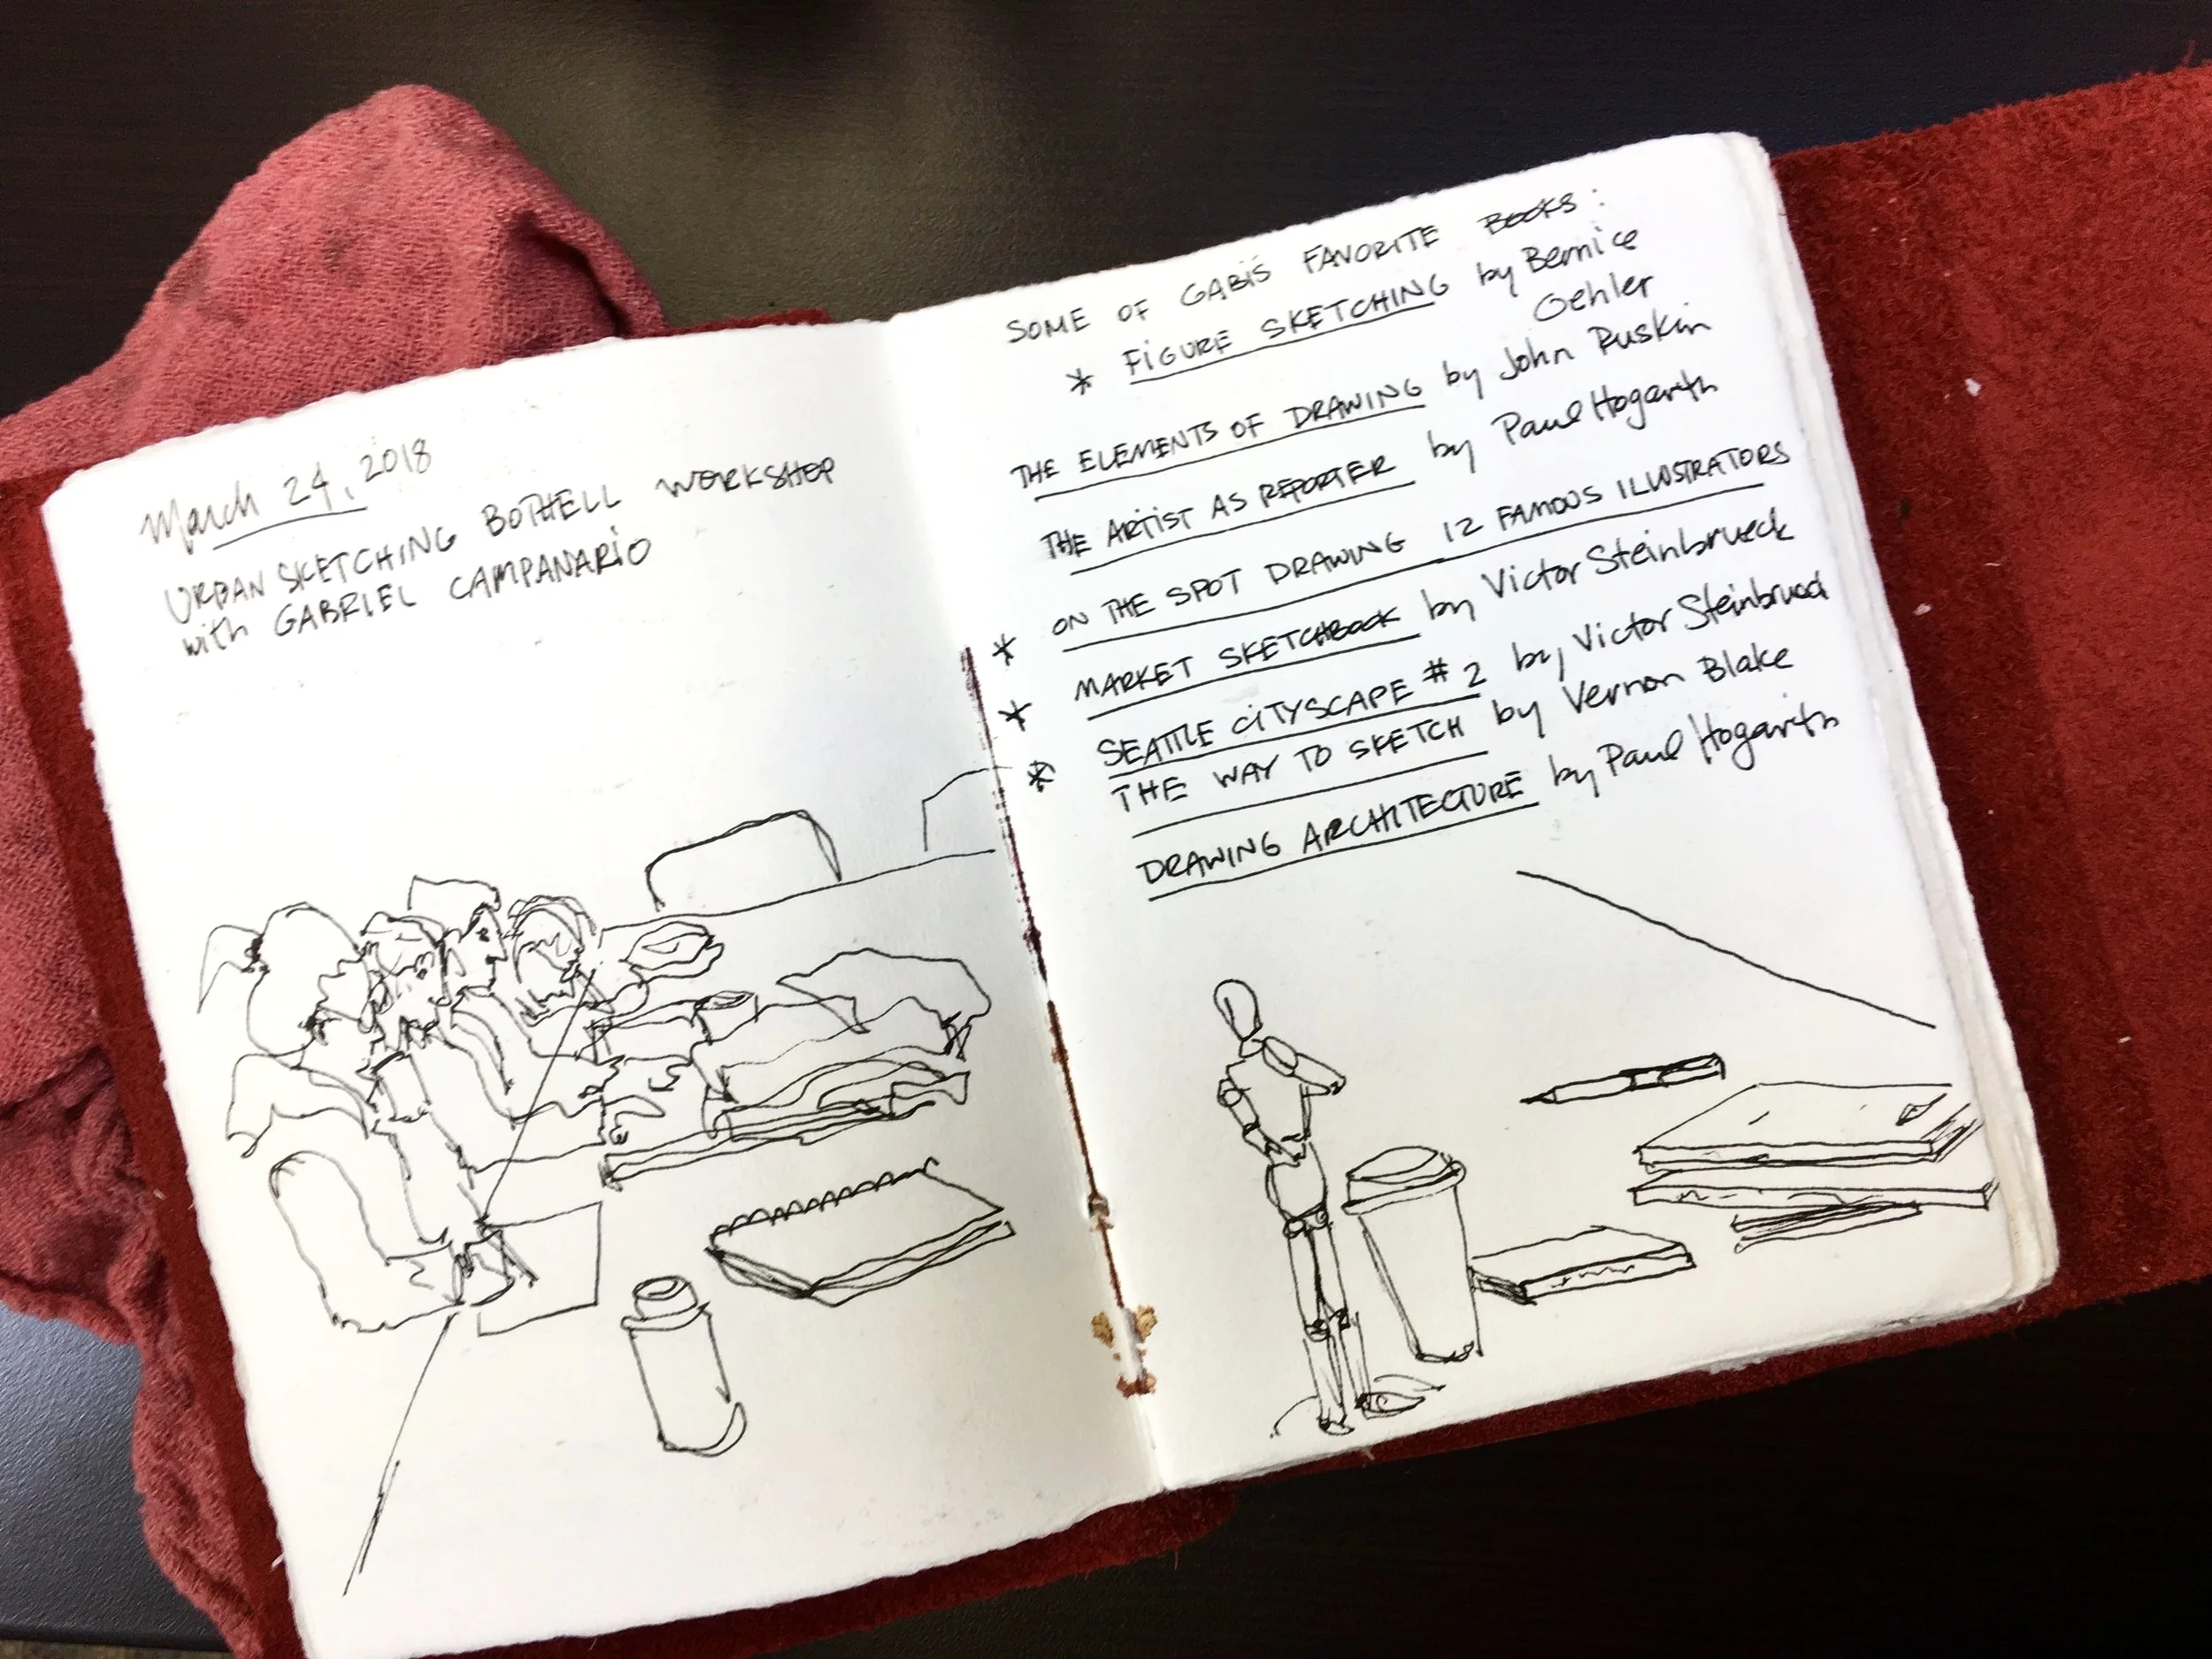 March 24, 2018
URBAN SKETCHING BOTHELL WORKSHOP
with GABRIEL CAMPANARIO
SOME OF GABI'S FAVORITE BOOKS:
* FIGURE SKETCHING by Bernice
Oehler
THE ELEMENTS OF DRAWING by John Ruskin
THE ARTIST AS REPORTER by Paul Hogarth
ON THE SPOT DRAWING 12 FAMOUS ILLUSTRATORS
* MARKET SKETCHBOOK by Victor Steinbrueck
* SEATTLE CITYSCAPE #2 by Victor Steinbrueck
* THE WAY TO SKETCH by Vernon Blake
DRAWING ARCHITECTURE by Paul Hogarth